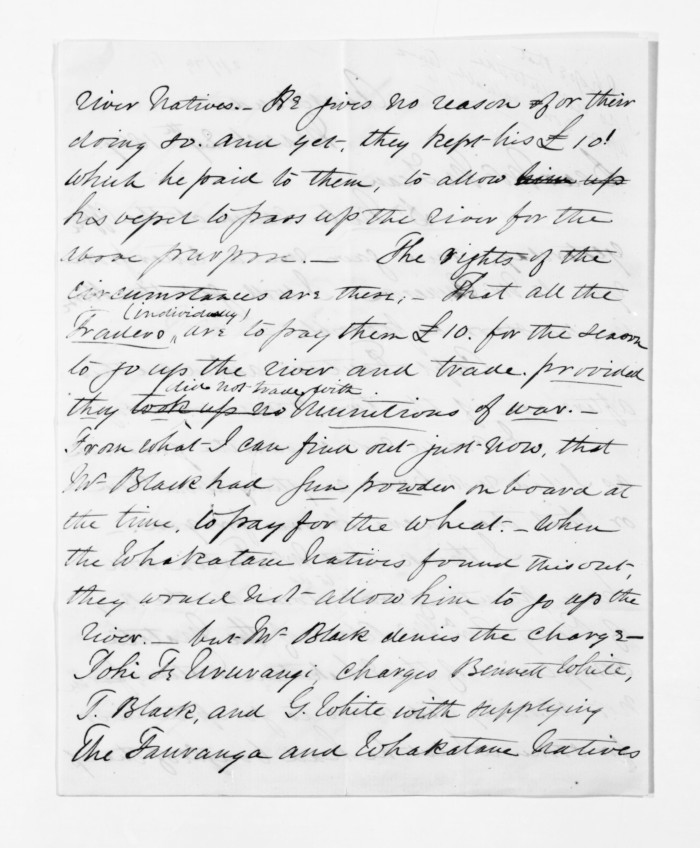 river Natives. – He gives no reason for their
doing so. and yet, they kept his £10!
which he paid to them, to allow him up
his vessel to pass up the river for the
above purpose. – The rights of the
circumstances are these, – That all the
(individually)
Traders, are to pay them £10. for the season
to go up the river and trade. provided
did not trade with
they took up no munitions of war. –
From what I can find out just now, that
Mr Black had Gun powder on board at
the time, to pay for the wheat. – When
the Whakatane Natives found this out,
they would not allow him to go up the
river. – but Mr Black denies the charge –
Tohi Te Ururangi, charges Bennett White,
T. Black, and G. White with supplying
The Tauranga and Whakatane Natives